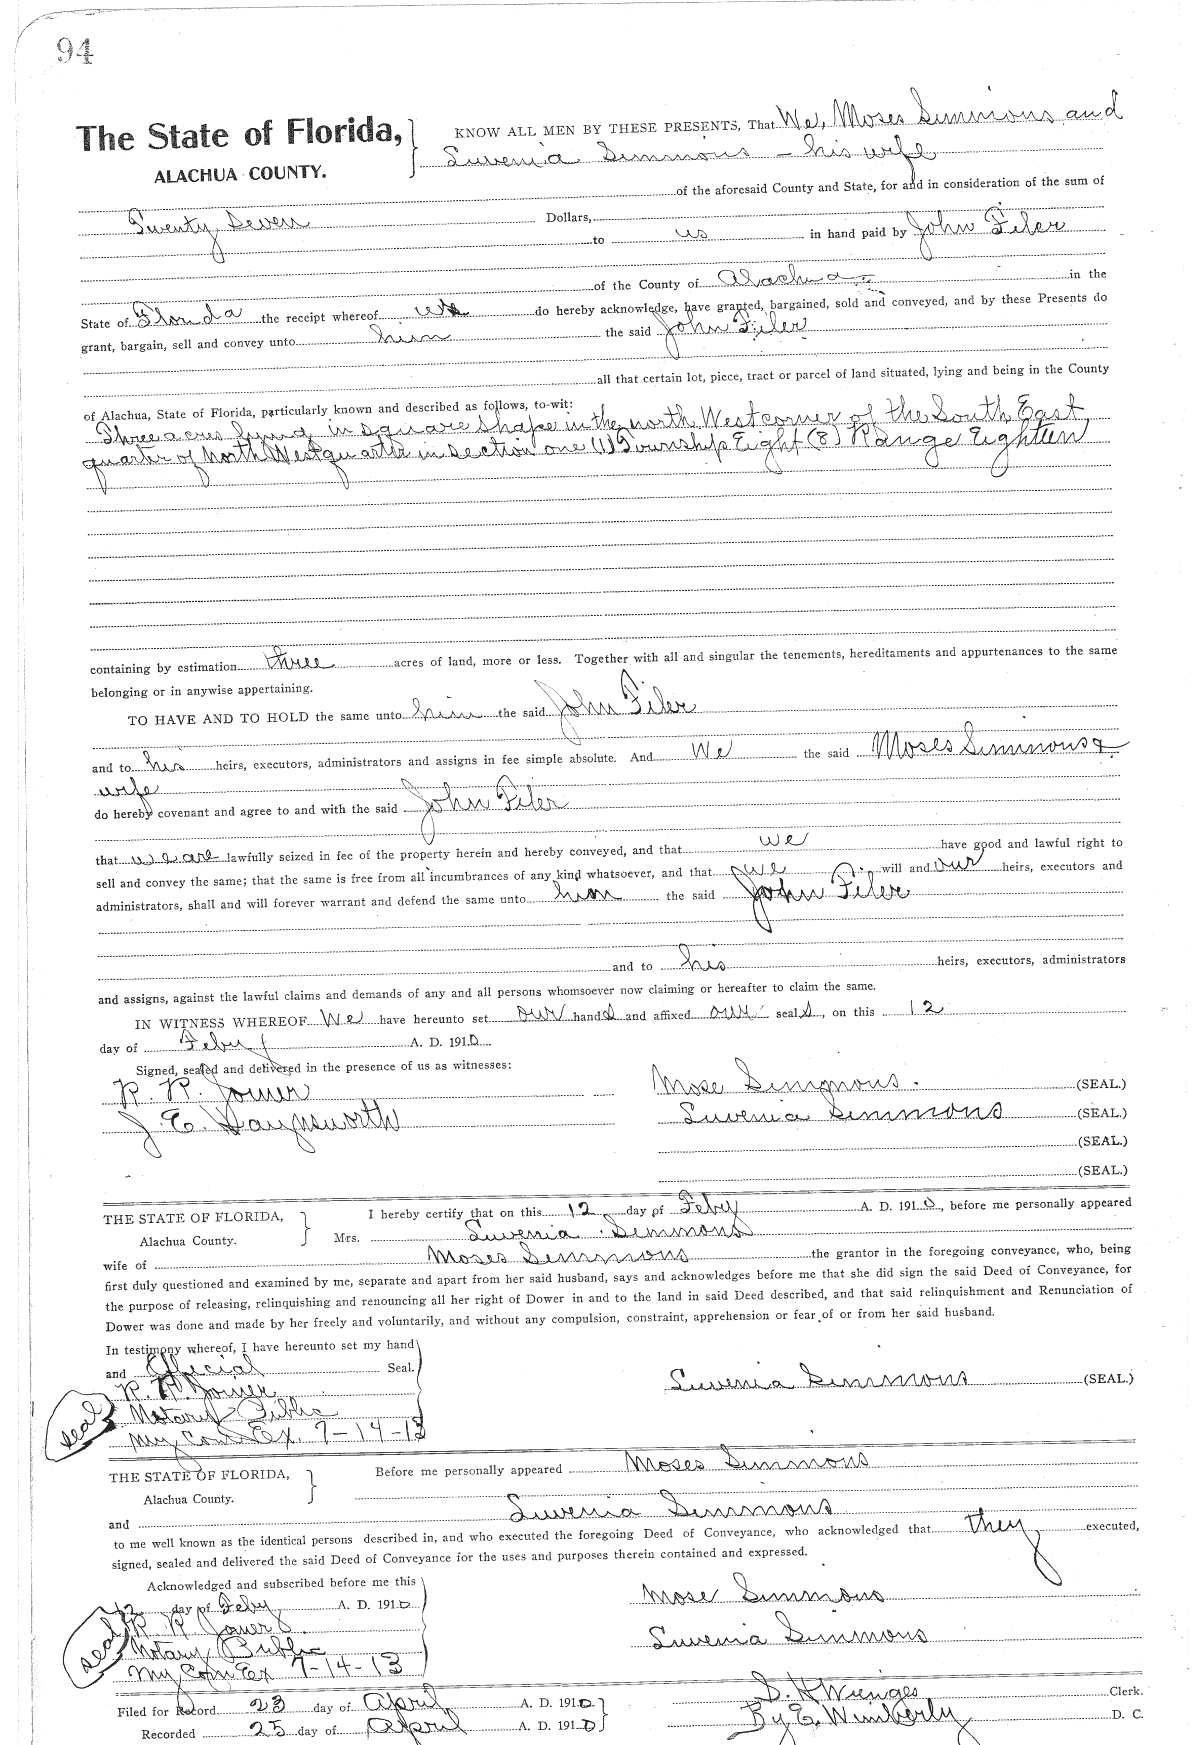 94
The State of Florida,
ALACHUA COUNTY.
KNOW ALL MEN BY THESE PRESENTS, That We, Moses Simmons and
Luvenia Simmons - his wife
of the aforesaid County and State, for and in consideration of the sum of
Twenty Seven Dollars,
to us in hand paid by John Filer
of the County of Alachua in the
State of Florida the receipt whereof we do hereby acknowledge, have granted, bargained, sold and conveyed, and by these Presents do
grant, bargain, sell and convey unto him the said John Filer
all that certain lot, piece, tract or parcel of land situated, lying and being in the County
of Alachua, State of Florida, particularly known and described as follows, to-wit:
Three acres lying in square shape in the north West corner of the South East
quarter of North West quarter in section one (1) Township Eight (8) Range Eighteen
containing by estimation three acres of land, more or less. Together with all and singular the tenements, hereditaments and appurtenances to the same
belonging or in anywise appertaining.
TO HAVE AND TO HOLD the same unto him the said John Filer
and to his heirs, executors, administrators and assigns in fee simple absolute. And We the said Moses Simmons &
wife
do hereby covenant and agree to and with the said John Filer
that we are lawfully seized in fee of the property herein and hereby conveyed, and that we have good and lawful right to
sell and convey the same; that the same is free from all incumbrances of any kind whatsoever, and that we will and our heirs, executors and
administrators, shall and will forever warrant and defend the same unto him the said John Filer
and to his heirs, executors, administrators
and assigns, against the lawful claims and demands of any and all persons whomsoever now claiming or hereafter to claim the same.
IN WITNESS WHEREOF We have hereunto set our hands and affixed our seals, on this 12
day of Feby A. D. 1910
Signed, sealed and delivered in the presence of us as witnesses:
R. R. Joiner
Mose Simmons. (SEAL.)
J. E. Haynsworth
Luvenia Simmons (SEAL.)
(SEAL.)
(SEAL.)
THE STATE OF FLORIDA,
Alachua County.
I hereby certify that on this 12 day of Feby A. D. 1910, before me personally appeared
Mrs. Luvenia Simmons
wife of Moses Simmons the grantor in the foregoing conveyance, who, being
first duly questioned and examined by me, separate and apart from her said husband, says and acknowledges before me that she did sign the said Deed of Conveyance, for
the purpose of releasing, relinquishing and renouncing all her right of Dower in and to the land in said Deed described, and that said relinquishment and Renunciation of
Dower was done and made by her freely and voluntarily, and without any compulsion, constraint, apprehension or fear of or from her said husband.
In testimony whereof, I have hereunto set my hand
and Official Seal.
Luvenia Simmons (SEAL.)
R. R. Joiner
Notary Public
seal
My Com Ex. 7-14-13
THE STATE OF FLORIDA,
Alachua County.
Before me personally appeared Moses Simmons
and Luvenia Simmons
to me well known as the identical persons described in, and who executed the foregoing Deed of Conveyance, who acknowledged that they executed,
signed, sealed and delivered the said Deed of Conveyance for the uses and purposes therein contained and expressed.
Acknowledged and subscribed before me this
12 day of Feby A. D. 1910
Mose Simmons
R. R. Joiner
seal
Notary Public
Luvenia Simmons
My Com Ex 7-14-13
Filed for Record 23 day of April A. D. 1910
S. H Wienges Clerk.
Recorded 25 day of April A. D. 1910
By E. Wimberly D. C.